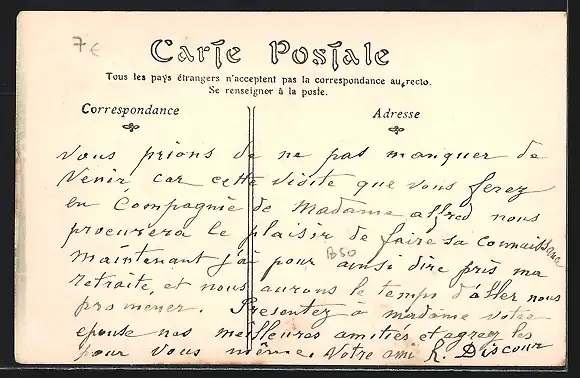 7 €
Carte Postale
Tous les pays étrangers n'acceptent pas la correspondance au recto.
Se renseigner à la poste.
Correspondance
Adresse
vous prions de ne pas manquer de
venir car cette visite que vous ferez
en Compagnie de Madame alfred nous
procurera le plaisir de faire sa connaissance
Maintenant j'ai pour ainsi dire pris ma
B50
retraite, et nous aurons le temps d'aller nous
promener. Presentez a madame votre
epouse nos meilleures amitiés et agreez les
pour vous même. Votre ami h. Discour